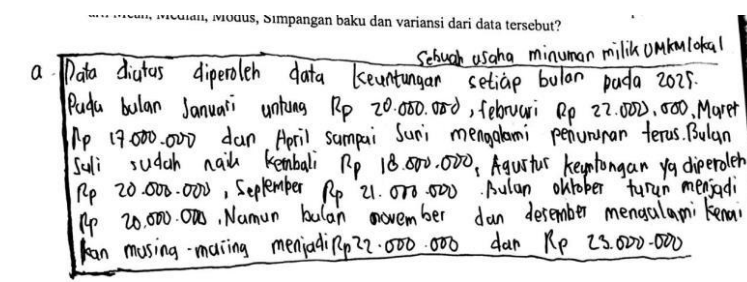 Mean, Median, Modus, Simpangan baku dan variansi dari data tersebut?
Sebuah usaha minuman milik UMKM lokal
a. Data diatas diperoleh data keuntungan setiap bulan pada 2025.
Pada bulan Januari untung Rp 20.000.000, februari Rp 22.000.000, Maret
Rp 17.000.000 dan April sampai Juni mengalami penurunan terus. Bulan
Juli sudah naik kembali Rp 18.000.000, Agustus keuntongan yg diperoleh
Rp 20.000.000, September Rp 21.000.000. Bulan oktober turun menjadi
Rp 20.000.000. Namun bulan november dan desember mengalami kenai
kan masing-masing menjadi Rp 22.000.000 dan Rp 23.000.000